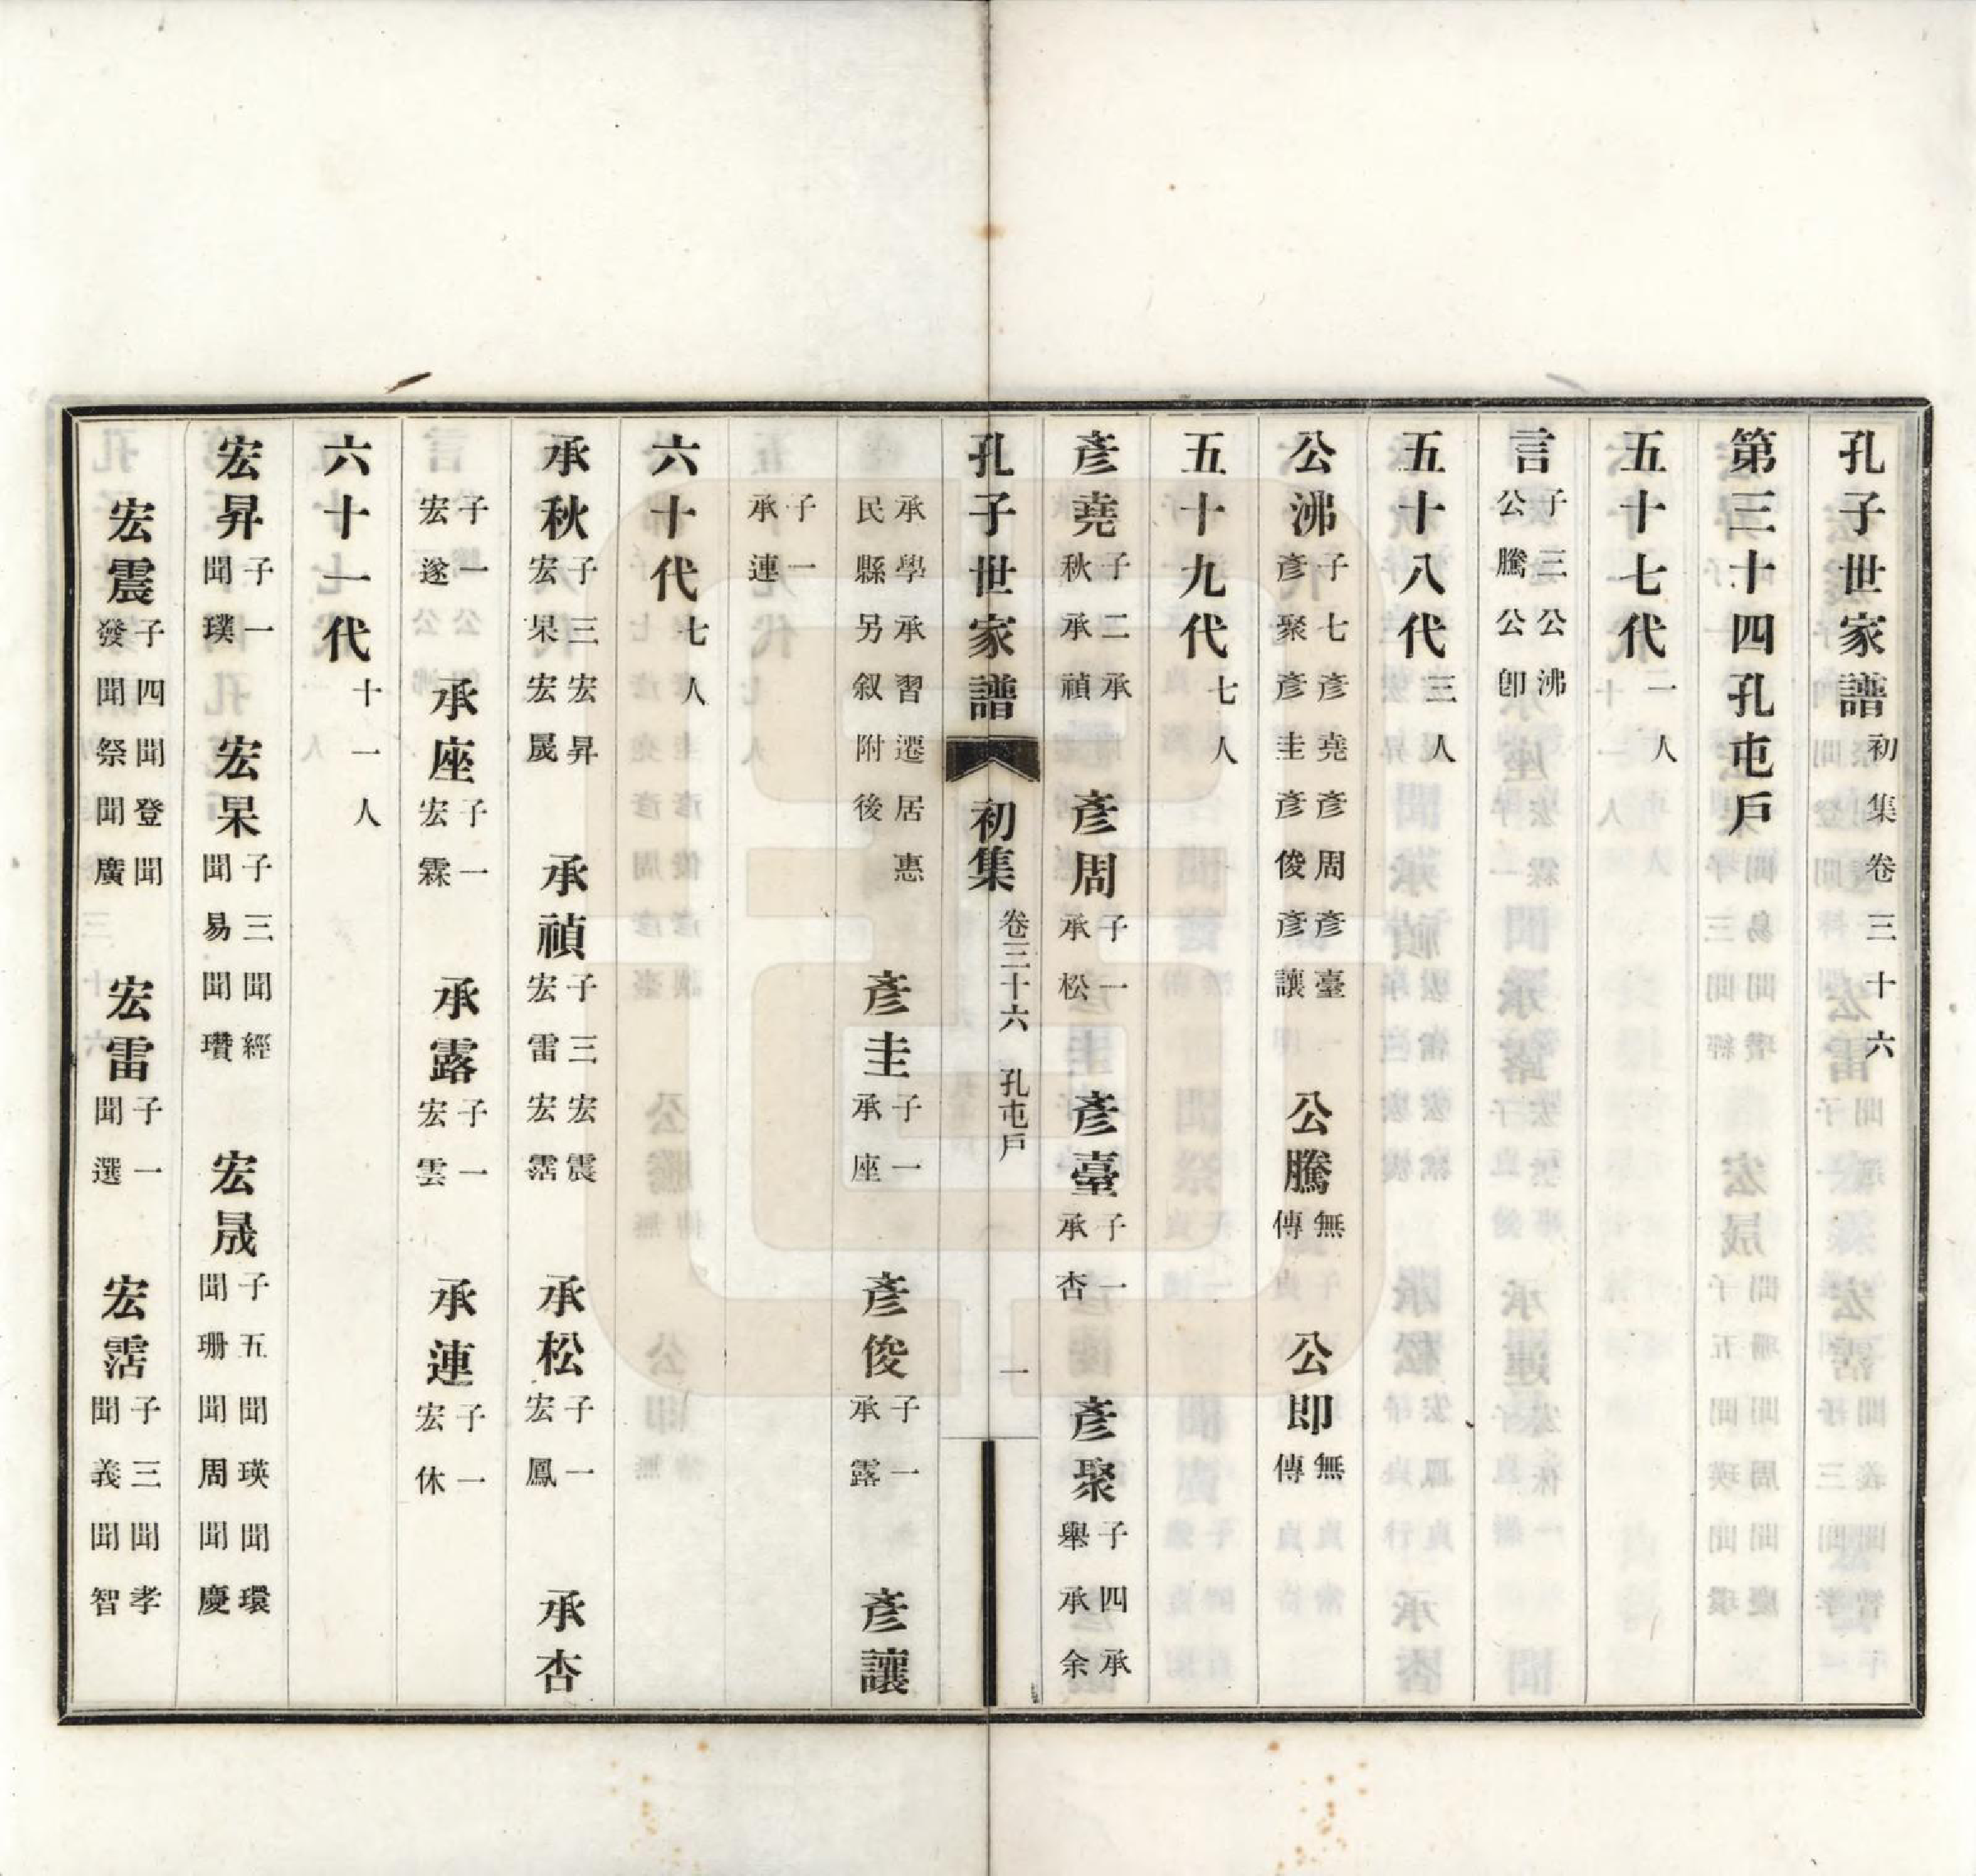 孔子世家譜初集卷三十六
第三十四孔屯戶
五十七代一人
言子三公沸公騰公卽
五十八代三人
公沸子七彥堯彥周彥臺彥聚彥圭彥俊彥讓 公騰無傳 公即無傳
五十九代七人
彥堯子二承秋承禎 彥周子一承松 彥臺子一承杏 彥聚子四承舉承余
孔子世家譜 初集 卷三十六 孔屯戶 一
承學承習遷居惠民縣另叙附後 彥圭子一承座 彥俊子一承露 彥讓
子一承連
六十代七人
承秋子三宏昇宏杲宏晟 承禎子三宏震宏雷宏霑 承松子一宏鳳 承杏
子一宏遂 承座子一宏霖 承露子一宏雲 承連子一宏休
六十一代十一人
宏昇子一聞璞 宏杲子三聞經聞易聞瓚 宏晟子五聞瑛聞環聞珊聞周聞慶
宏震子四聞登聞發聞祭聞廣 宏雷子一聞選 宏霑子三聞孝聞義聞智